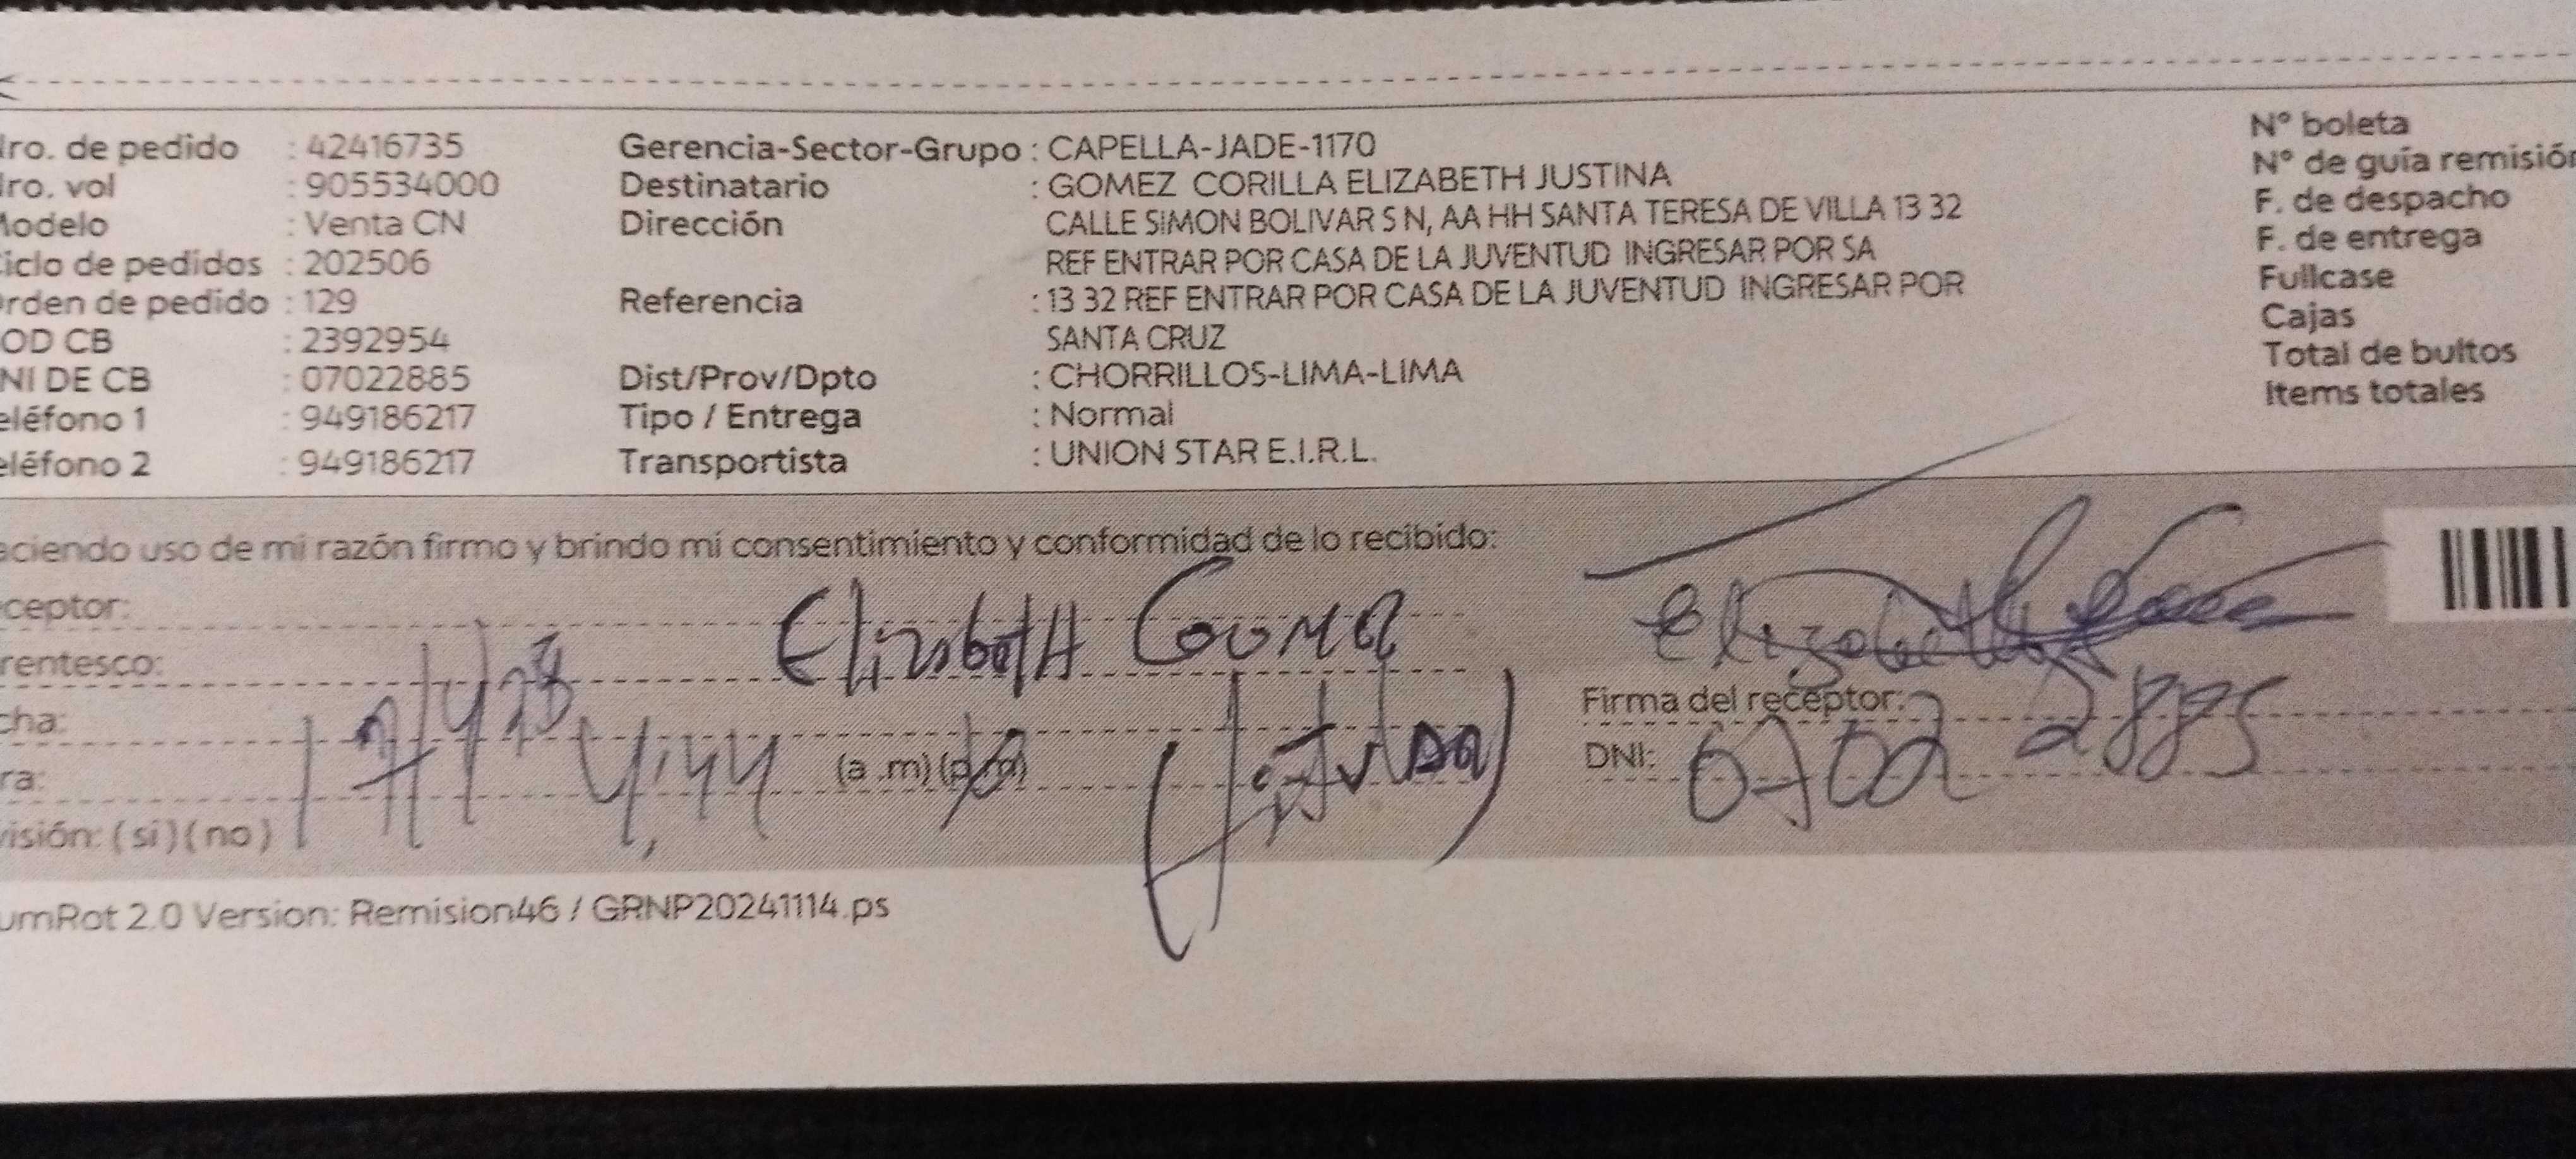 ro. de pedido : 42416735 Gerencia-Sector-Grupo : CAPELLA-JADE-1170 N° boleta
ro. vol : 905534000 Destinatario : GOMEZ CORILLA ELIZABETH JUSTINA N° de guía remisión
odelo : Venta CN Dirección CALLE SIMON BOLIVAR S N, AA HH SANTA TERESA DE VILLA 13 32 F. de despacho
iclo de pedidos : 202506 REF ENTRAR POR CASA DE LA JUVENTUD INGRESAR POR SA F. de entrega
rden de pedido : 129 Referencia : 13 32 REF ENTRAR POR CASA DE LA JUVENTUD INGRESAR POR Fullcase
OD CB : 2392954 SANTA CRUZ Cajas
NI DE CB : 07022885 Dist/Prov/Dpto : CHORRILLOS-LIMA-LIMA Total de bultos
eléfono 1 : 949186217 Tipo / Entrega : Normal Items totales
eléfono 2 : 949186217 Transportista : UNION STAR E.I.R.L.
aciendo uso de mi razón firmo y brindo mi consentimiento y conformidad de lo recibido:
ceptor: Elizabeth Elizabeth
rentesco:
cha: Firma del receptor:
ra: 4:44 (a .m) (p.m) DNI: 07022885
visión: ( si ) ( no )
umRot 2.0 Version: Remision46 / GRNP20241114.ps